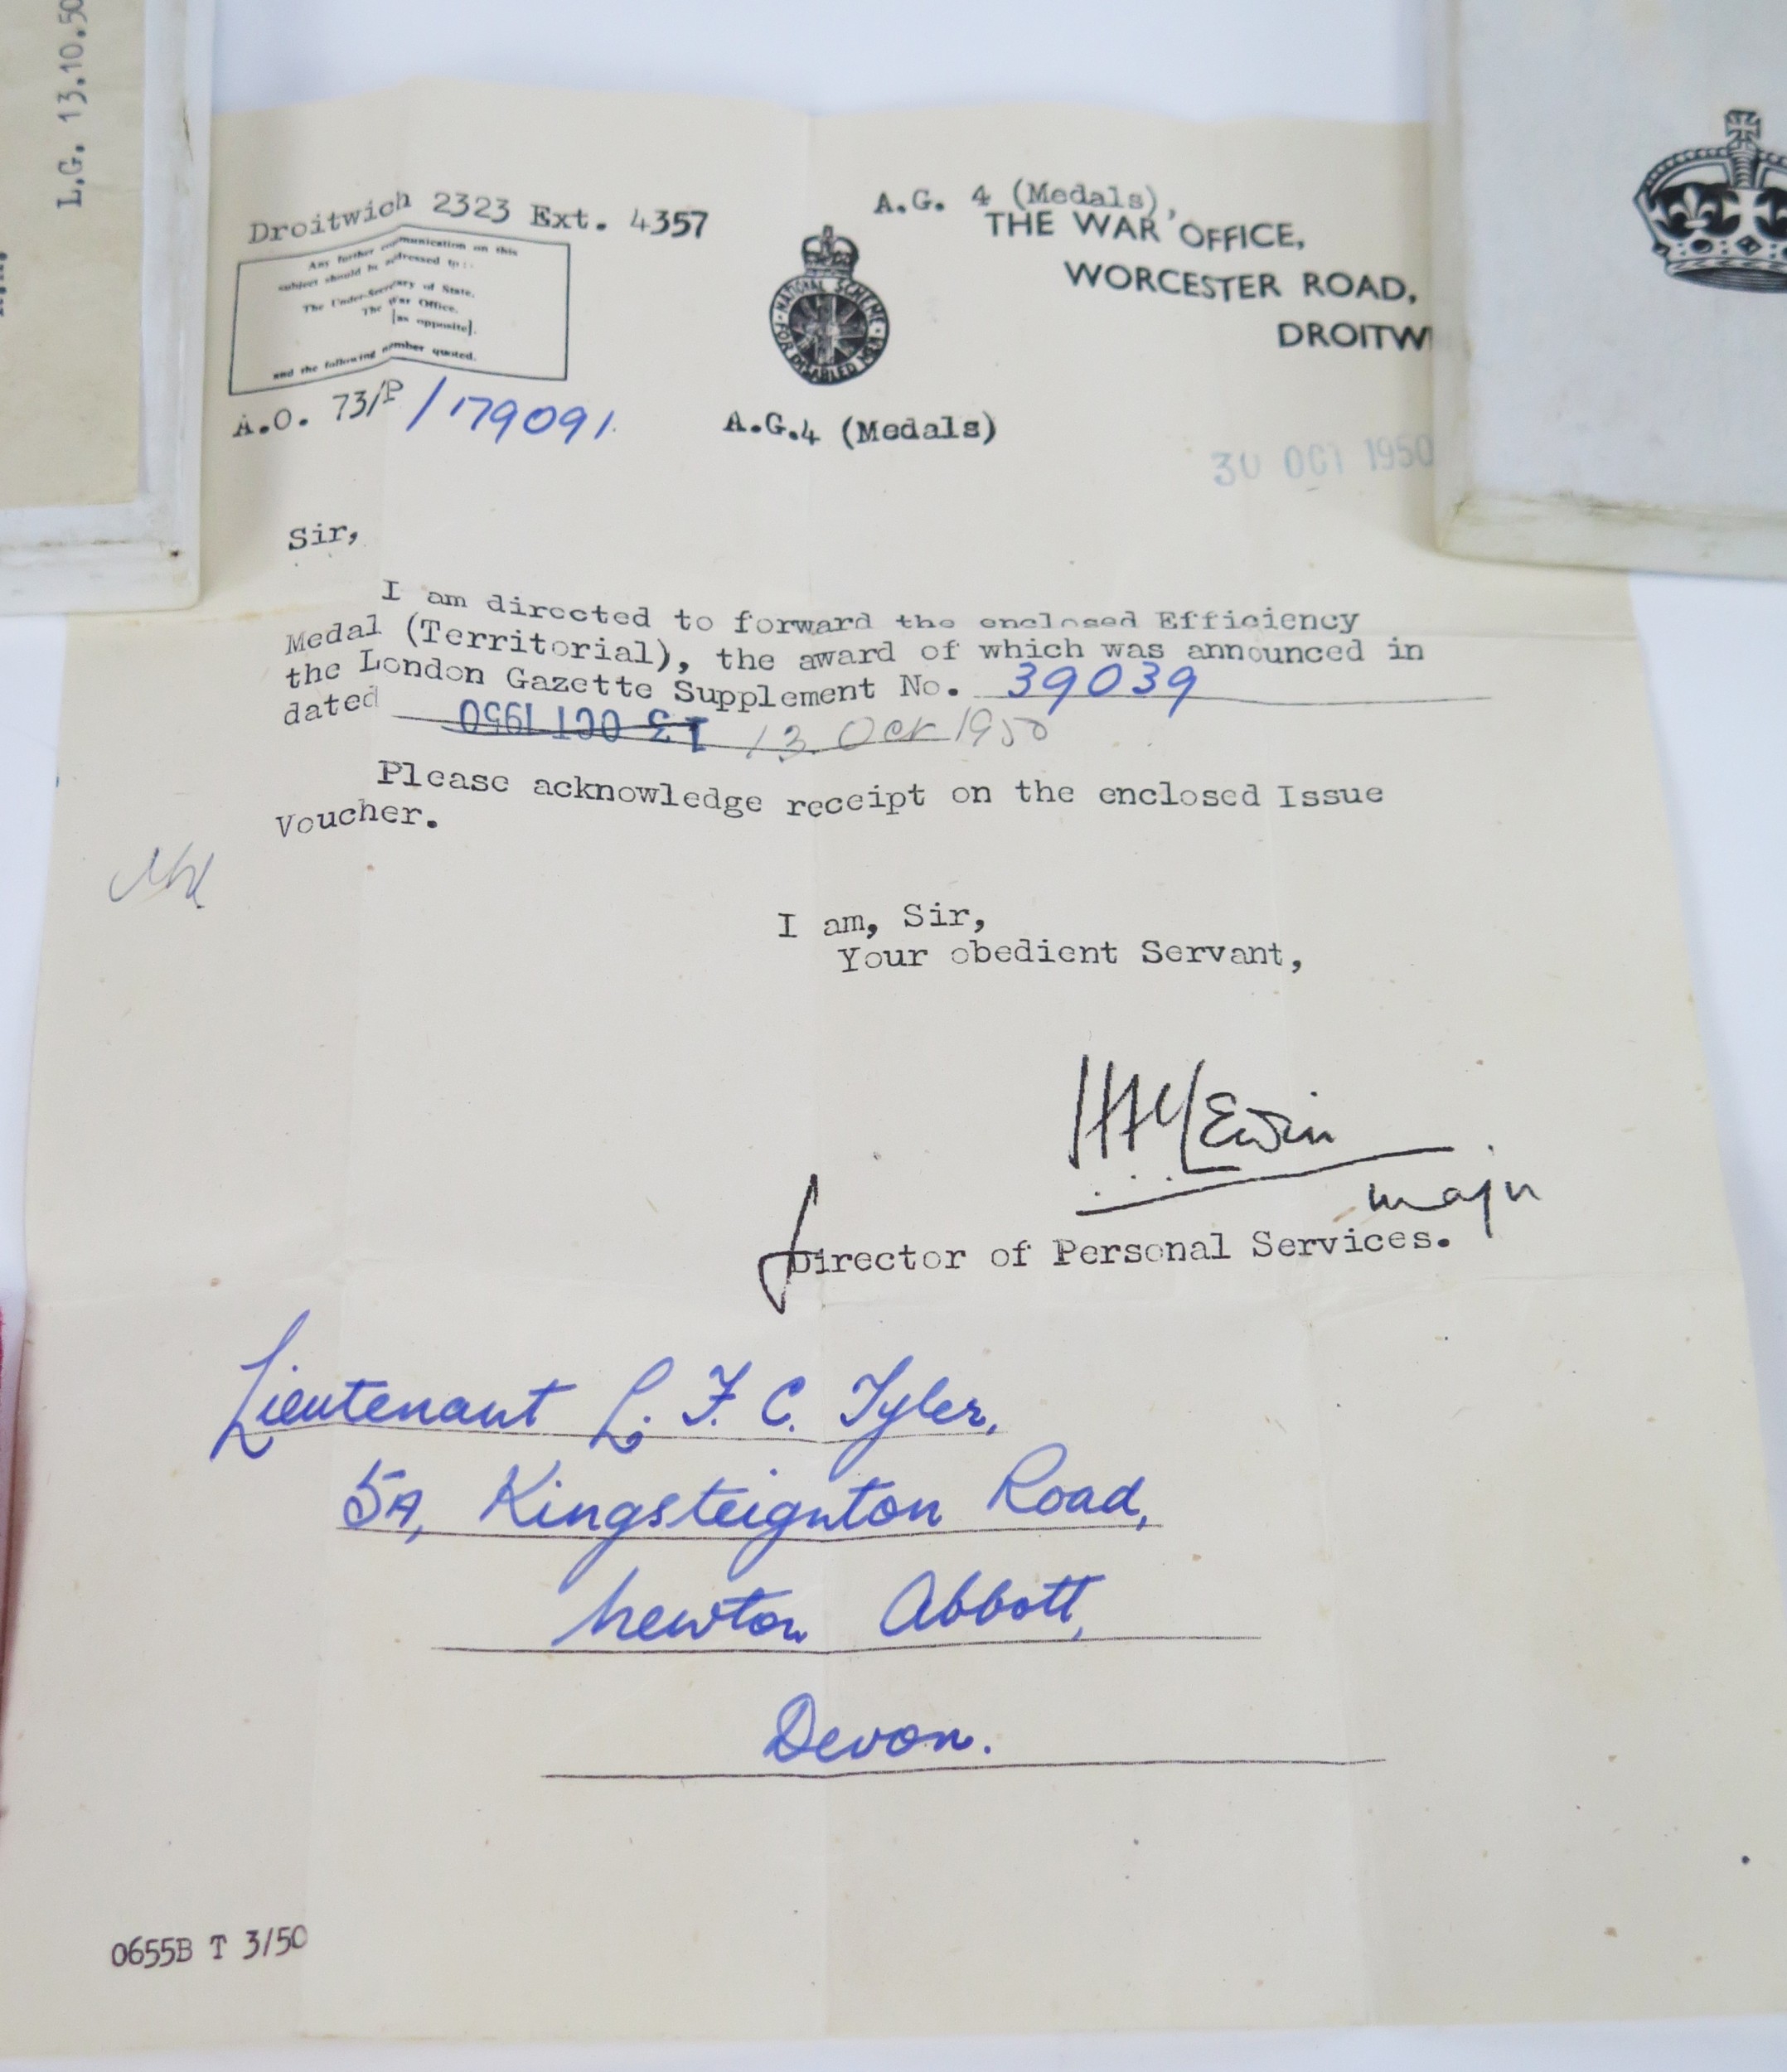 L.G. 13.10.50
Droitwich 2323 Ext. 4357
Any further communication on this
subject should be addressed to:-
The Under-Secretary of State,
The War Office,
[as opposite].
and the following number quoted.
A.O. 73/P/179091.
NATIONAL SCHEME
FOR DISABLED MEN
A.G.4 (Medals)
A.G. 4 (Medals),
THE WAR OFFICE,
WORCESTER ROAD,
DROITW
30 OCT 1950
Sir,
I am directed to forward the enclosed Efficiency
Medal (Territorial), the award of which was announced in
the London Gazette Supplement No. 39039
dated 13 OCT 1950 13 Oct 1950
Please acknowledge receipt on the enclosed Issue
Voucher.
I am, Sir,
Your obedient Servant,
Major
Director of Personal Services.
Lieutenant L. F. C. Tyler,
5A, Kingsteignton Road,
Newton Abbott,
Devon.
0655B T 3/50